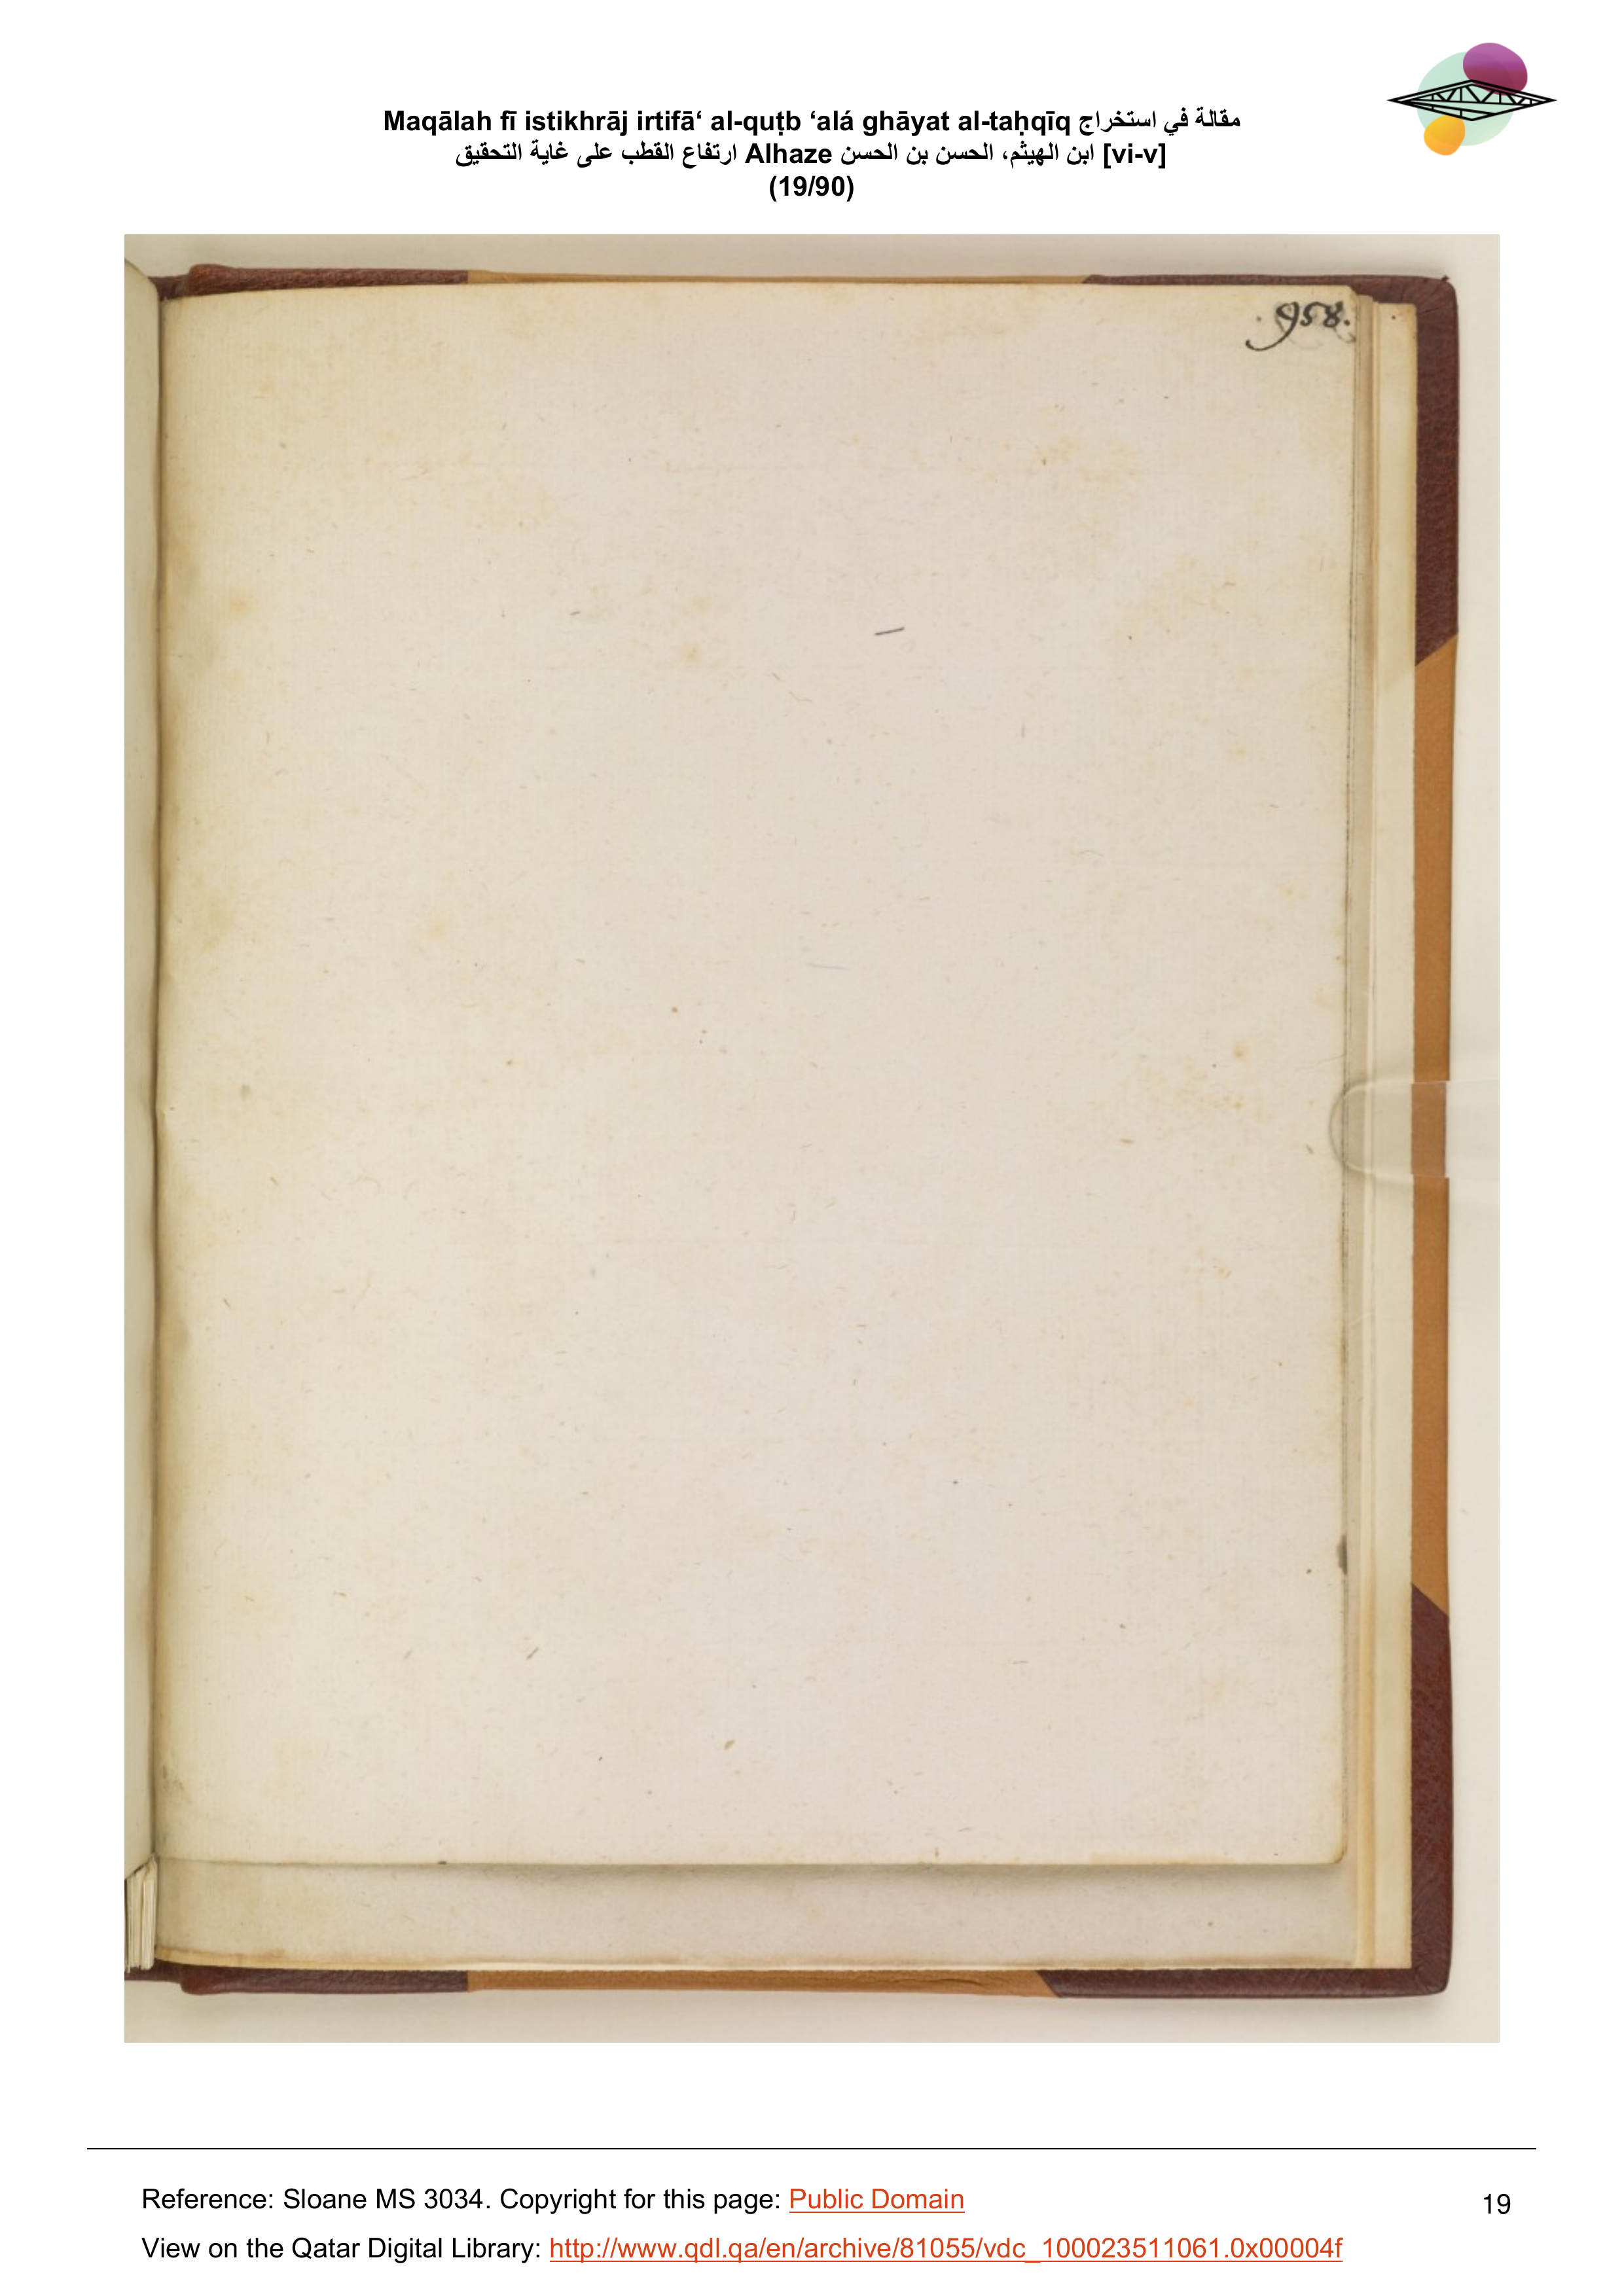 Maqālah fī istikhrāj irtifā‘ al-quṭb ‘alá ghāyat al-taḥqīq مقالة في استخراج
ارتفاع القطب على غاية التحقيق Alhaze ابن الهيثم، الحسن بن الحسن [vi-v]
(19/90)
958.
Reference: Sloane MS 3034. Copyright for this page: Public Domain
19
View on the Qatar Digital Library: http://www.qdl.qa/en/archive/81055/vdc_100023511061.0x00004f